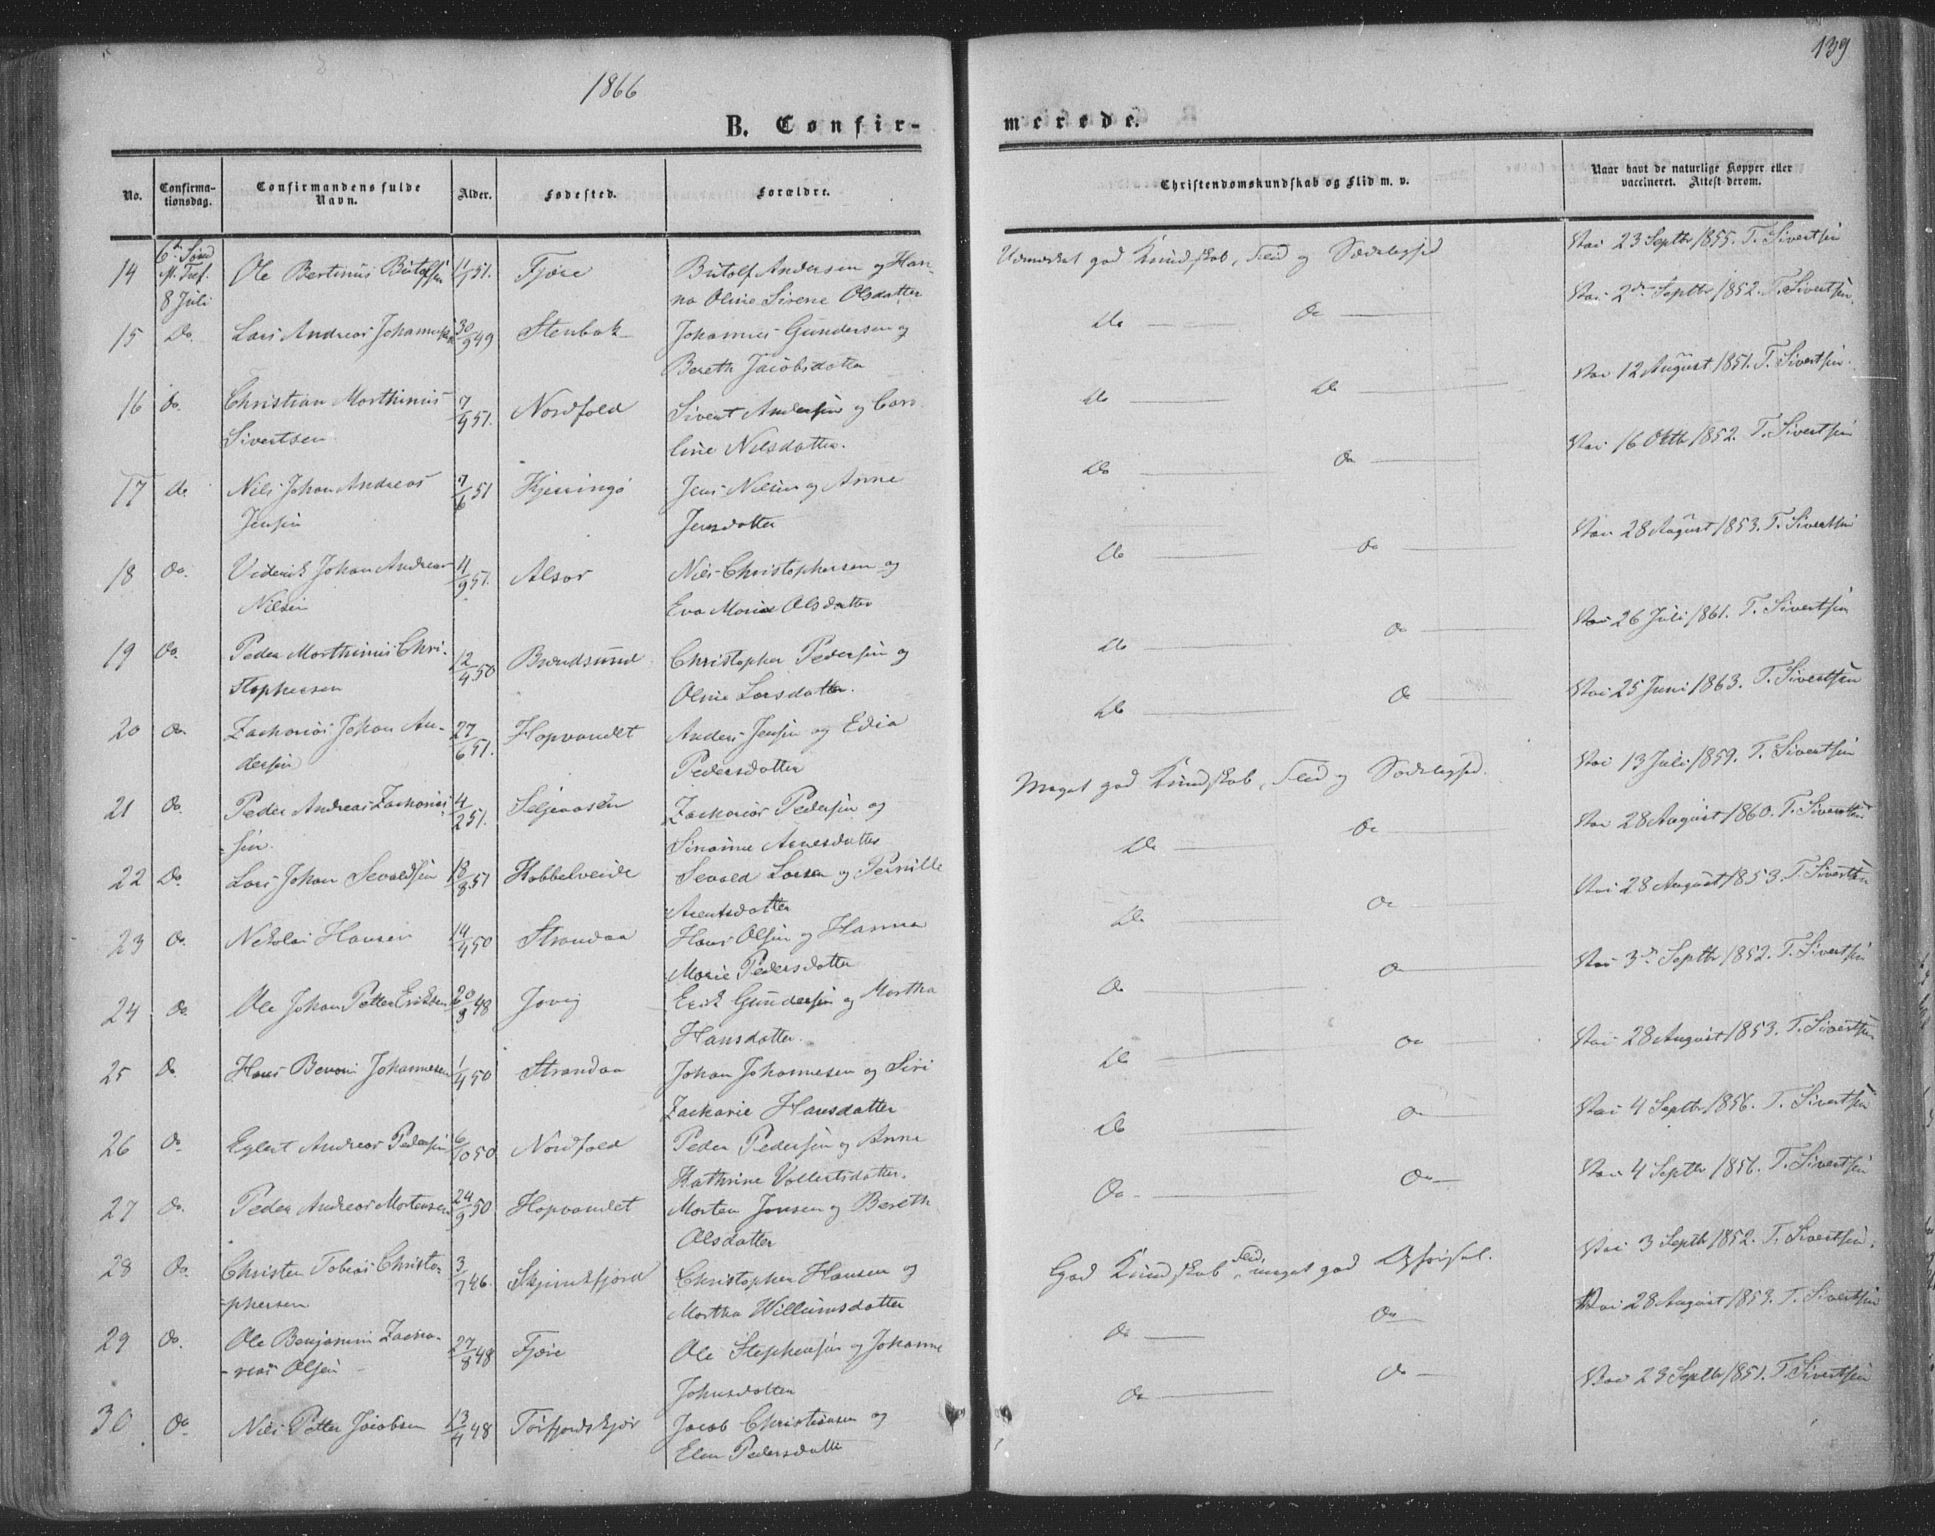 1866
139
B. Confir-
merede.
No.
Confirma-
tionsdag.
Confirmandens fulde
Navn.
Alder.
Fødested.
Forældre.
Christendomskundskab og Flid m. v.
Naar havt de naturlige Kopper eller
vaccineret. Attest derom.
14 6te Sønd. Ole Bertinus 51. Fjære Butolf Andersen og Han-
8 Juli na Oline Sirene Olsdatter
Udmærket god Kundskab, Flid og Sædelighed
Vac 23 Septbr 1855. T. Sivertsen
15 Do. Lars Andreas Johannesen 30/9 49 Stenbak Johannes Gundersen og
Bereth Jacobsdatter
Do Do
Vac 2den Septbr 1852. T. Sivertsen.
16 Do. Christian Morthinus 51. Nordfold Sivert Andersen og Caro-
Sivertsen line Nilsdatter.
Do Do
Vac 12 August 1851. T. Sivertsen.
17 do Nils Johan Andreas 7/6 51 Kjerringø Jens Nilsen og Anne
Jensen Jensdatter
Do Do
Vac 16 Oktbr 1852. T. Sivertsen
18 Do. Johan Andreas 11/9 51. Alsos Nils Christophersen og
Nilsen Eva Maria Olsdatter
Do Do
Vac 28 August 1853. T. Sivertsen
19 Do. Peder Morthinus Chri- 12/4 50 Brændsund Christopher Pedersen og
stophersen Oline Larsdatter.
Do Do
Vac 26 Juli 1861. T. Sivertsen
20 Do. Zacharias Johan An- 27/6 51. Hopvandet Anders Jensen og
dersen Pedersdatter
Do Do
Vac 25 Juni 1863. T. Sivertsen
21 Do. Peder Andreas Zacharias- 4/2 51. Seljeaasen Zacharias Pedersen og
sen. Arnesdatter
Meget god Kundskab, Flid og Sædelighed.
Vac 13 Juli 1859. T. Sivertsen
22 Do. Lars Johan Sevaldsen 18/8 51 Kobbelveide Sevald Larsen og Pernille
Arentsdatter
Do Do
Vac 28 August 1860. T. Sivertsen
23 Do. Nikolai Hansen 50 Strandaa Hans Olsen og Hanna
Marie Pedersdatter
Do Do
Vac 28 August 1853. T. Sivertsen
24 Do. Ole Johan Petter Eriksen 48 Jovig Erik Gundersen og Martha
Hansdatter.
Do Do
Vac 3die Septbr 1852. T. Sivertsen
25 Do. Hans Benoni Johannesen 50 Strandaa Johan Johannesen og Siri
Zackarie Hansdatter
Do Do
Vac 28 August 1853. T. Sivertsen
26 Do. Eglert Andreas Pedersen 6/10 50 Nordfold Peder Pedersen og Anne
Kathrine Vollertsdatter.
Do Do
Vac 4 Septbr 1856. T. Sivertsen
27 Do. Peder Andreas Mortensen 24/9 50 Hopvandet Morten Jensen og Bereth
Olsdatter
Do Do
Vac 4 Septbr 1856. T. Sivertsen
28 Do. Christen Tobias Christo- 3/7 46. Skjelmsfjord Christopher Hansen og
phersen Martha Willumsdatter
God Kundskab, Flid, meget god Opførsel.
Vac 3 Septbr 1852. T. Sivertsen.
29 Do. Ole Benjamin Zacha- 27/8 48 Fjære Ole Stephensen og Johanne
rias Olsen Johnsdatter
Do Do
Vac 28 August 1853. T. Sivertsen
30. Do Nils Petter Jacobsen 13/4 48 Tørfjordskjær Jacob Christiansen og
Elen Pedersdatter
Do Do
Vac 23 Septbr 1851. T. Sivertsen